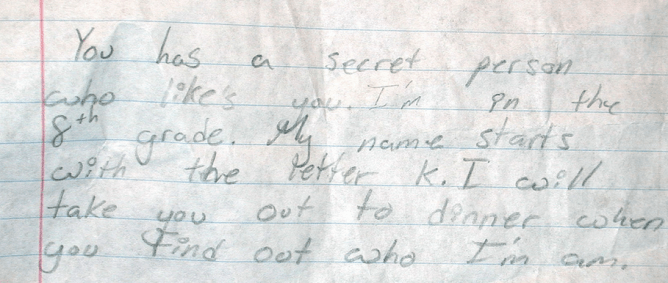 You has a secret person
who like's you. I'm in the
8th grade. My name starts
with the letter K. I will
take you out to dinner when
you find out who I'm am.